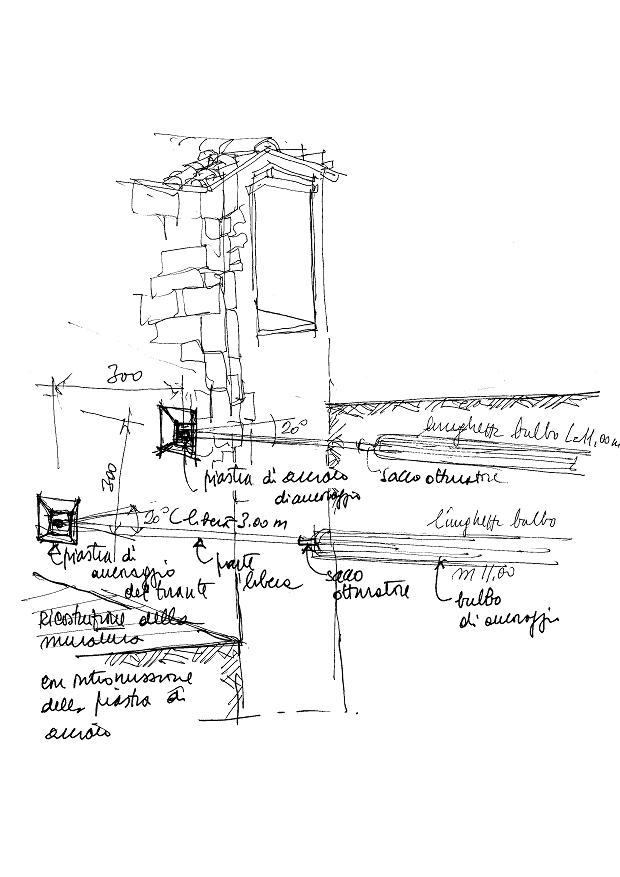 300
20°
lunghezza bulbo L=11,00m
300
piastra di acciaio
di ancoraggio
sacco otturatore
20°
L libera=3.00 m
lunghezza bulbo
piastra di
ancoraggio
del tirante
parte
libera
sacco
otturatore
m 11,00
bulbo
di ancoraggio
RICOSTRUZIONE della
muratura
con intromissione
della piastra di
acciaio